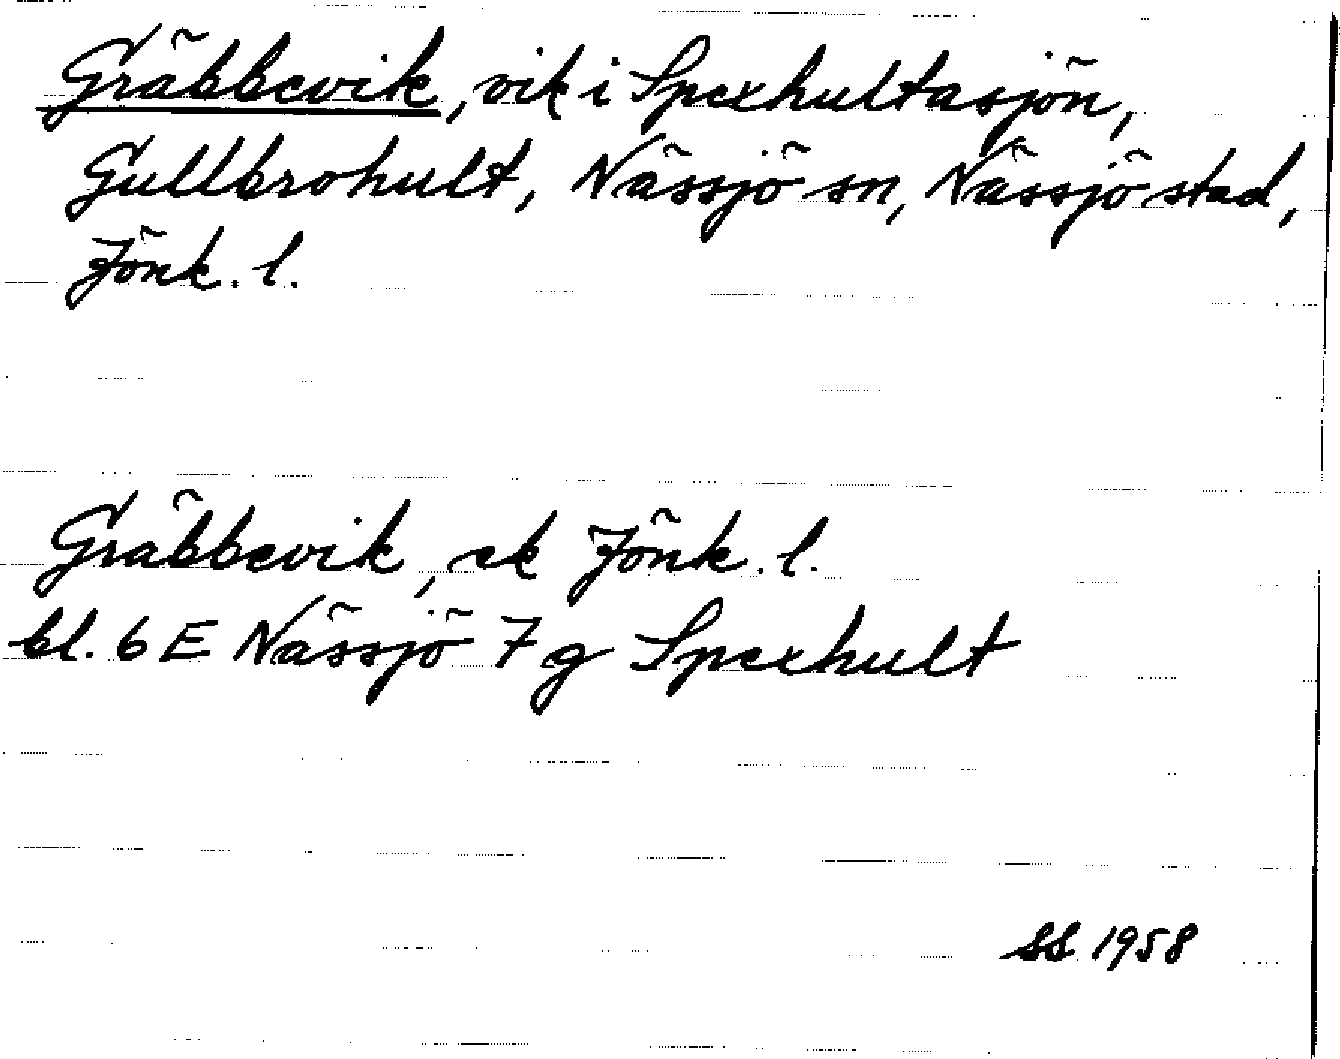 Gräbbevik, vik i Spexhultasjön,
Gullbrohult, Nässjö sn, Nässjö stad,
Jönk. l.
Gräbbevik, ek Jönk. l.
bl. 6 E Nässjö 7 g Spexhult
SS 1958